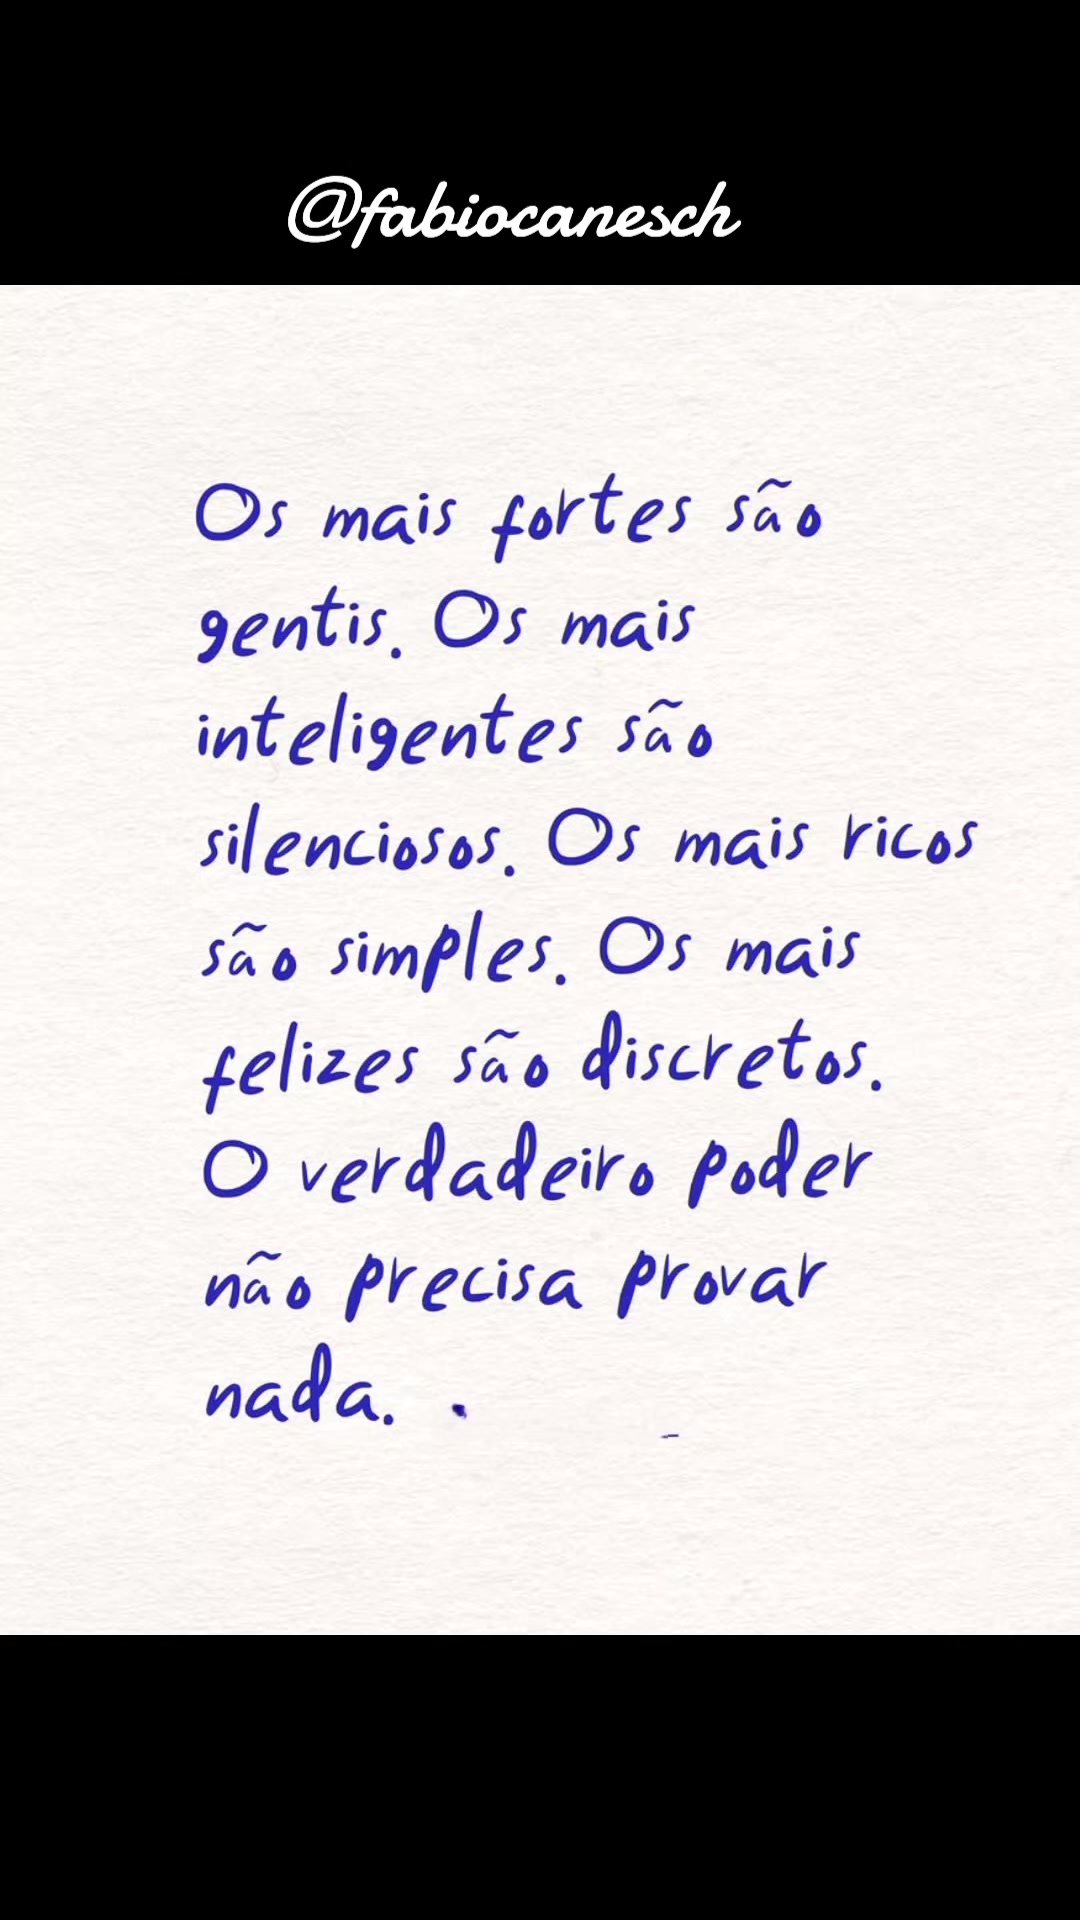 @fabiocanesch
Os mais fortes são
gentis. Os mais
inteligentes são
silenciosos. Os mais ricos
são simples. Os mais
felizes são discretos.
O verdadeiro poder
não precisa provar
nada.